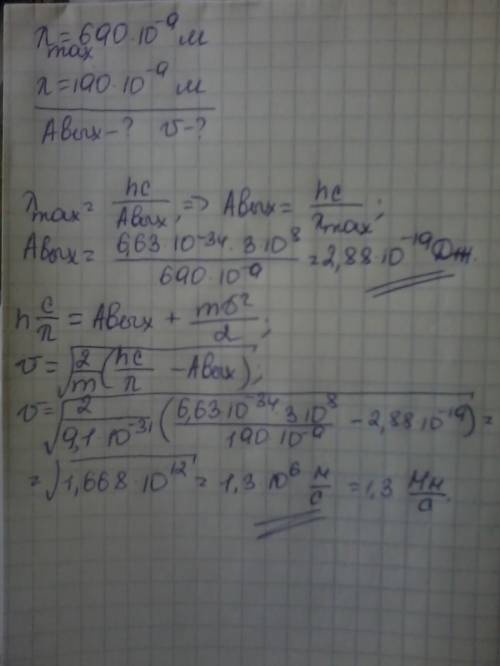 λmax = 690·10⁻⁹ м
λ = 190·10⁻⁹ м
Aвых - ? v - ?
λmax = hc/Aвых; => Aвых = hc/λmax;
Aвых = (6,63·10⁻³⁴·3·10⁸)/(690·10⁻⁹) = 2,88·10⁻¹⁹ Дж.
h c/λ = Aвых + mv²/2;
v = √(2/m (hc/λ - Aвых));
v = √(2/(9,1·10⁻³¹) ((6,63·10⁻³⁴·3·10⁸)/(190·10⁻⁹) - 2,88·10⁻¹⁹)) =
= √(1,668·10¹²) = 1,3·10⁶ м/с = 1,3 Мм/с.